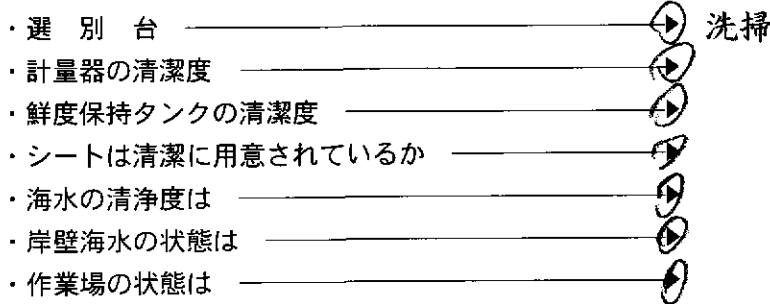 ・選　別　台 ――――――▶ 洗掃
・計量器の清潔度 ――――――▶
・鮮度保持タンクの清潔度 ――――――▶
・シートは清潔に用意されているか ――――――▶
・海水の清浄度は ――――――▶
・岸壁海水の状態は ――――――▶
・作業場の状態は ――――――▶